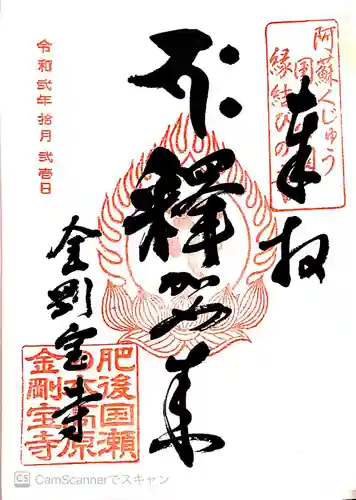 阿蘇くじゅう
国
縁結びの
奉拝
釋迦如来
令和弐年拾月弐壱日
金剛宝寺
肥後国瀬
の本高原
金剛宝寺
CS CamScannerでスキャン